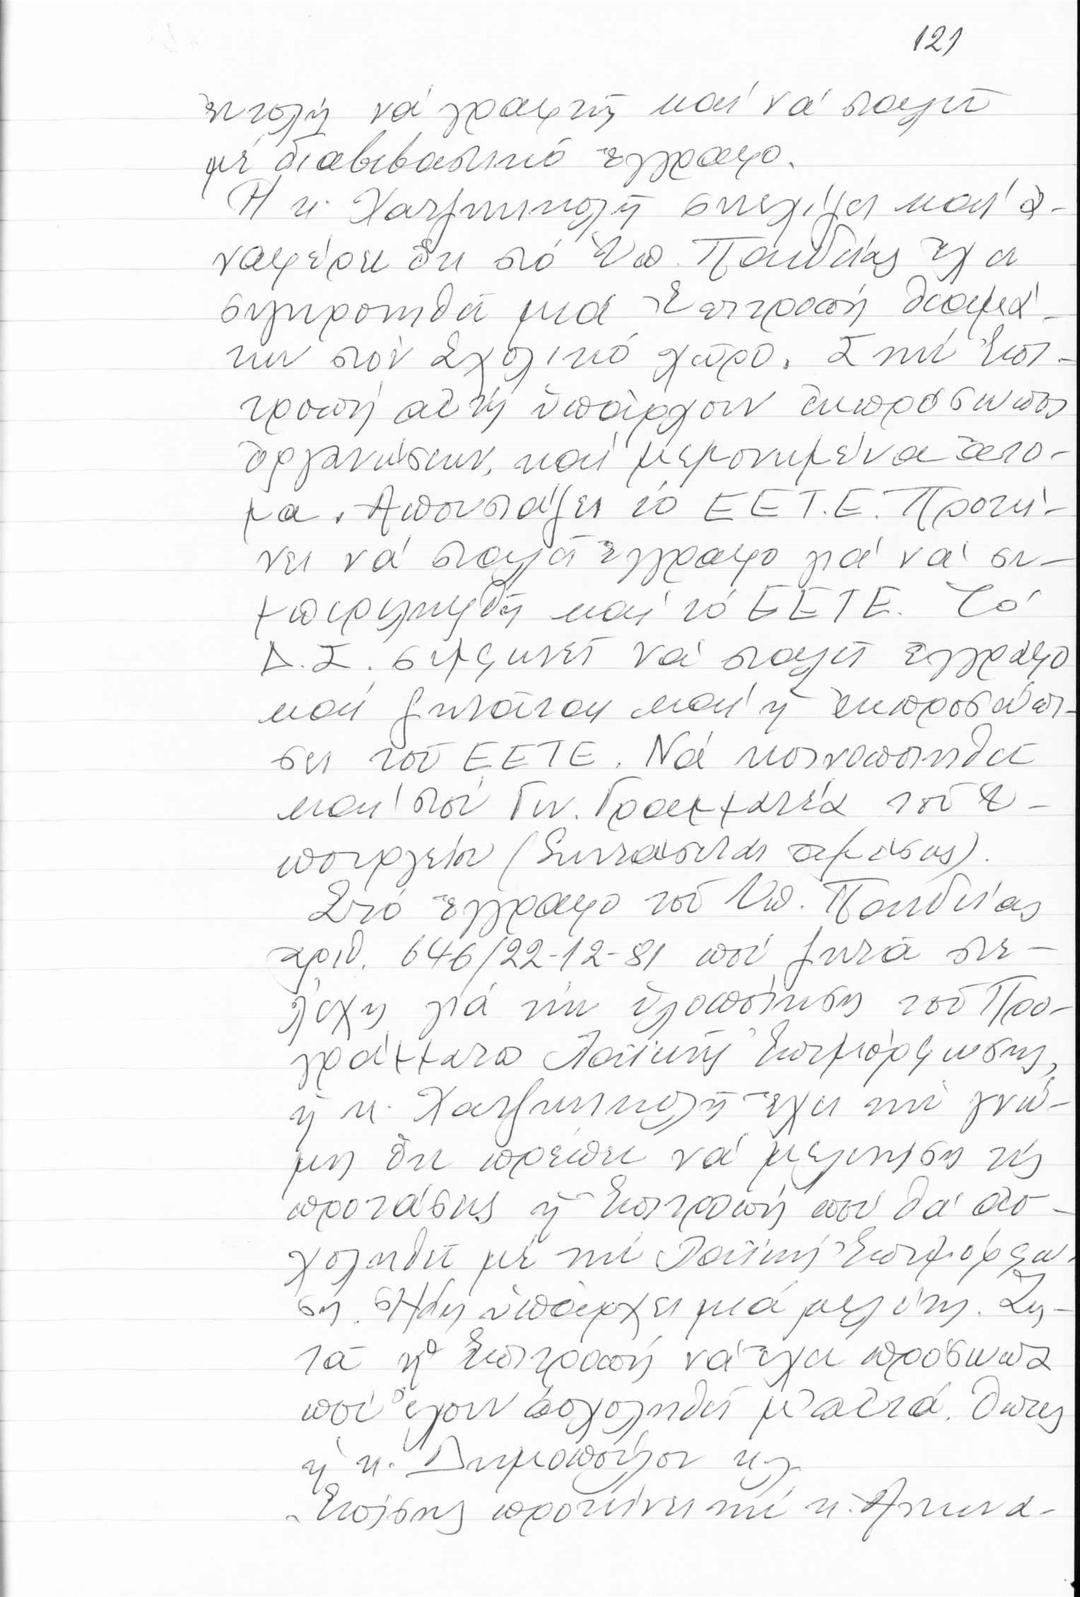 121
ἐντολή νά γραφτῆ καί νά σταλεῖ
μέ διαβιβαστικό ἔγγραφο.
Ἡ κ. Χατζηνικολῆ συνεχίζει καί ἀ-
ναφέρει ὅτι στό Ὑπ. Παιδείας ἔχει
συγκροτηθεῖ μιά Ἐπιτροπή θεαμά-
των στόν Σχολικό χῶρο. Στήν Ἐπι-
τροπή αὐτή ὑπάρχουν ἐκπρόσωποι
ὀργανώσεων, καί μεμονωμένα ἄτο-
μα. Ἀπουσιάζει τό ΕΕΤ.Ε. Προτεί-
νει νά σταλεῖ ἔγγραφο γιά νά συ-
μπεριληφθῆ καί τό ΕΕΤΕ. Τό
Δ.Σ. συμφωνεῖ νά σταλεῖ ἔγγραφο
καί ζητᾶται καί ἡ ἐκπροσώπη-
ση τοῦ ΕΕΤΕ. Νά κοινοποιηθεῖ
καί στό Γεν. Γραμματέα τοῦ Ὑ-
πουργείου (Συντάσσεται ἀμέσως).
Στό ἔγγραφο τοῦ Ὑπ. Παιδείας
ἀριθ. 646/22-12-81 πού ζητᾶ στε-
λέχη γιά τήν ὑλοποίηση τοῦ Προ-
γράμματος Λαϊκῆς Ἐπιμόρφωσης,
ἡ κ. Χατζηνικολῆ ἔχει τήν γνώ-
μη ὅτι πρέπει νά μελετήση τίς
προτάσεις ἡ Ἐπιτροπή πού θά ἀσ-
χοληθεῖ μέ τήν Λαϊκή Ἐπιμόρφω-
ση. Ἤδη ὑπάρχει μιά μελέτη. Ζη-
τᾶ ἡ Ἐπιτροπή νά ἔχει πρόσωπα
πού ἔχουν ἀσχοληθεῖ μ' αὐτά. Ὅπως
ἡ κ. Δημοπούλου κλ
Ἐπίσης προτείνει τήν κ.